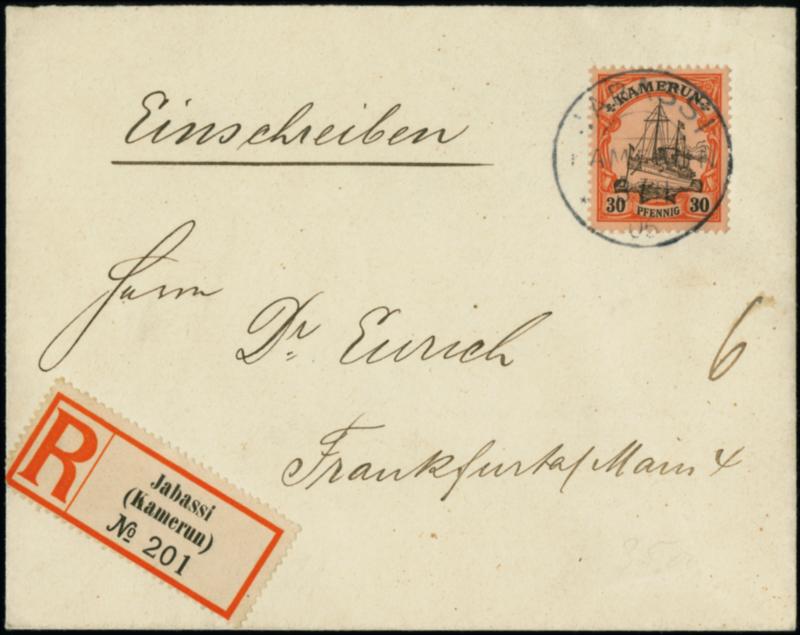 Einschreiben
KAMERUN
30 PFENNIG 30
JABASSI
KAMERUN
06
Herrn
Dr. Eurich
6
Frankfurt a/Main 4
R
Jabassi
(Kamerun)
№ 201